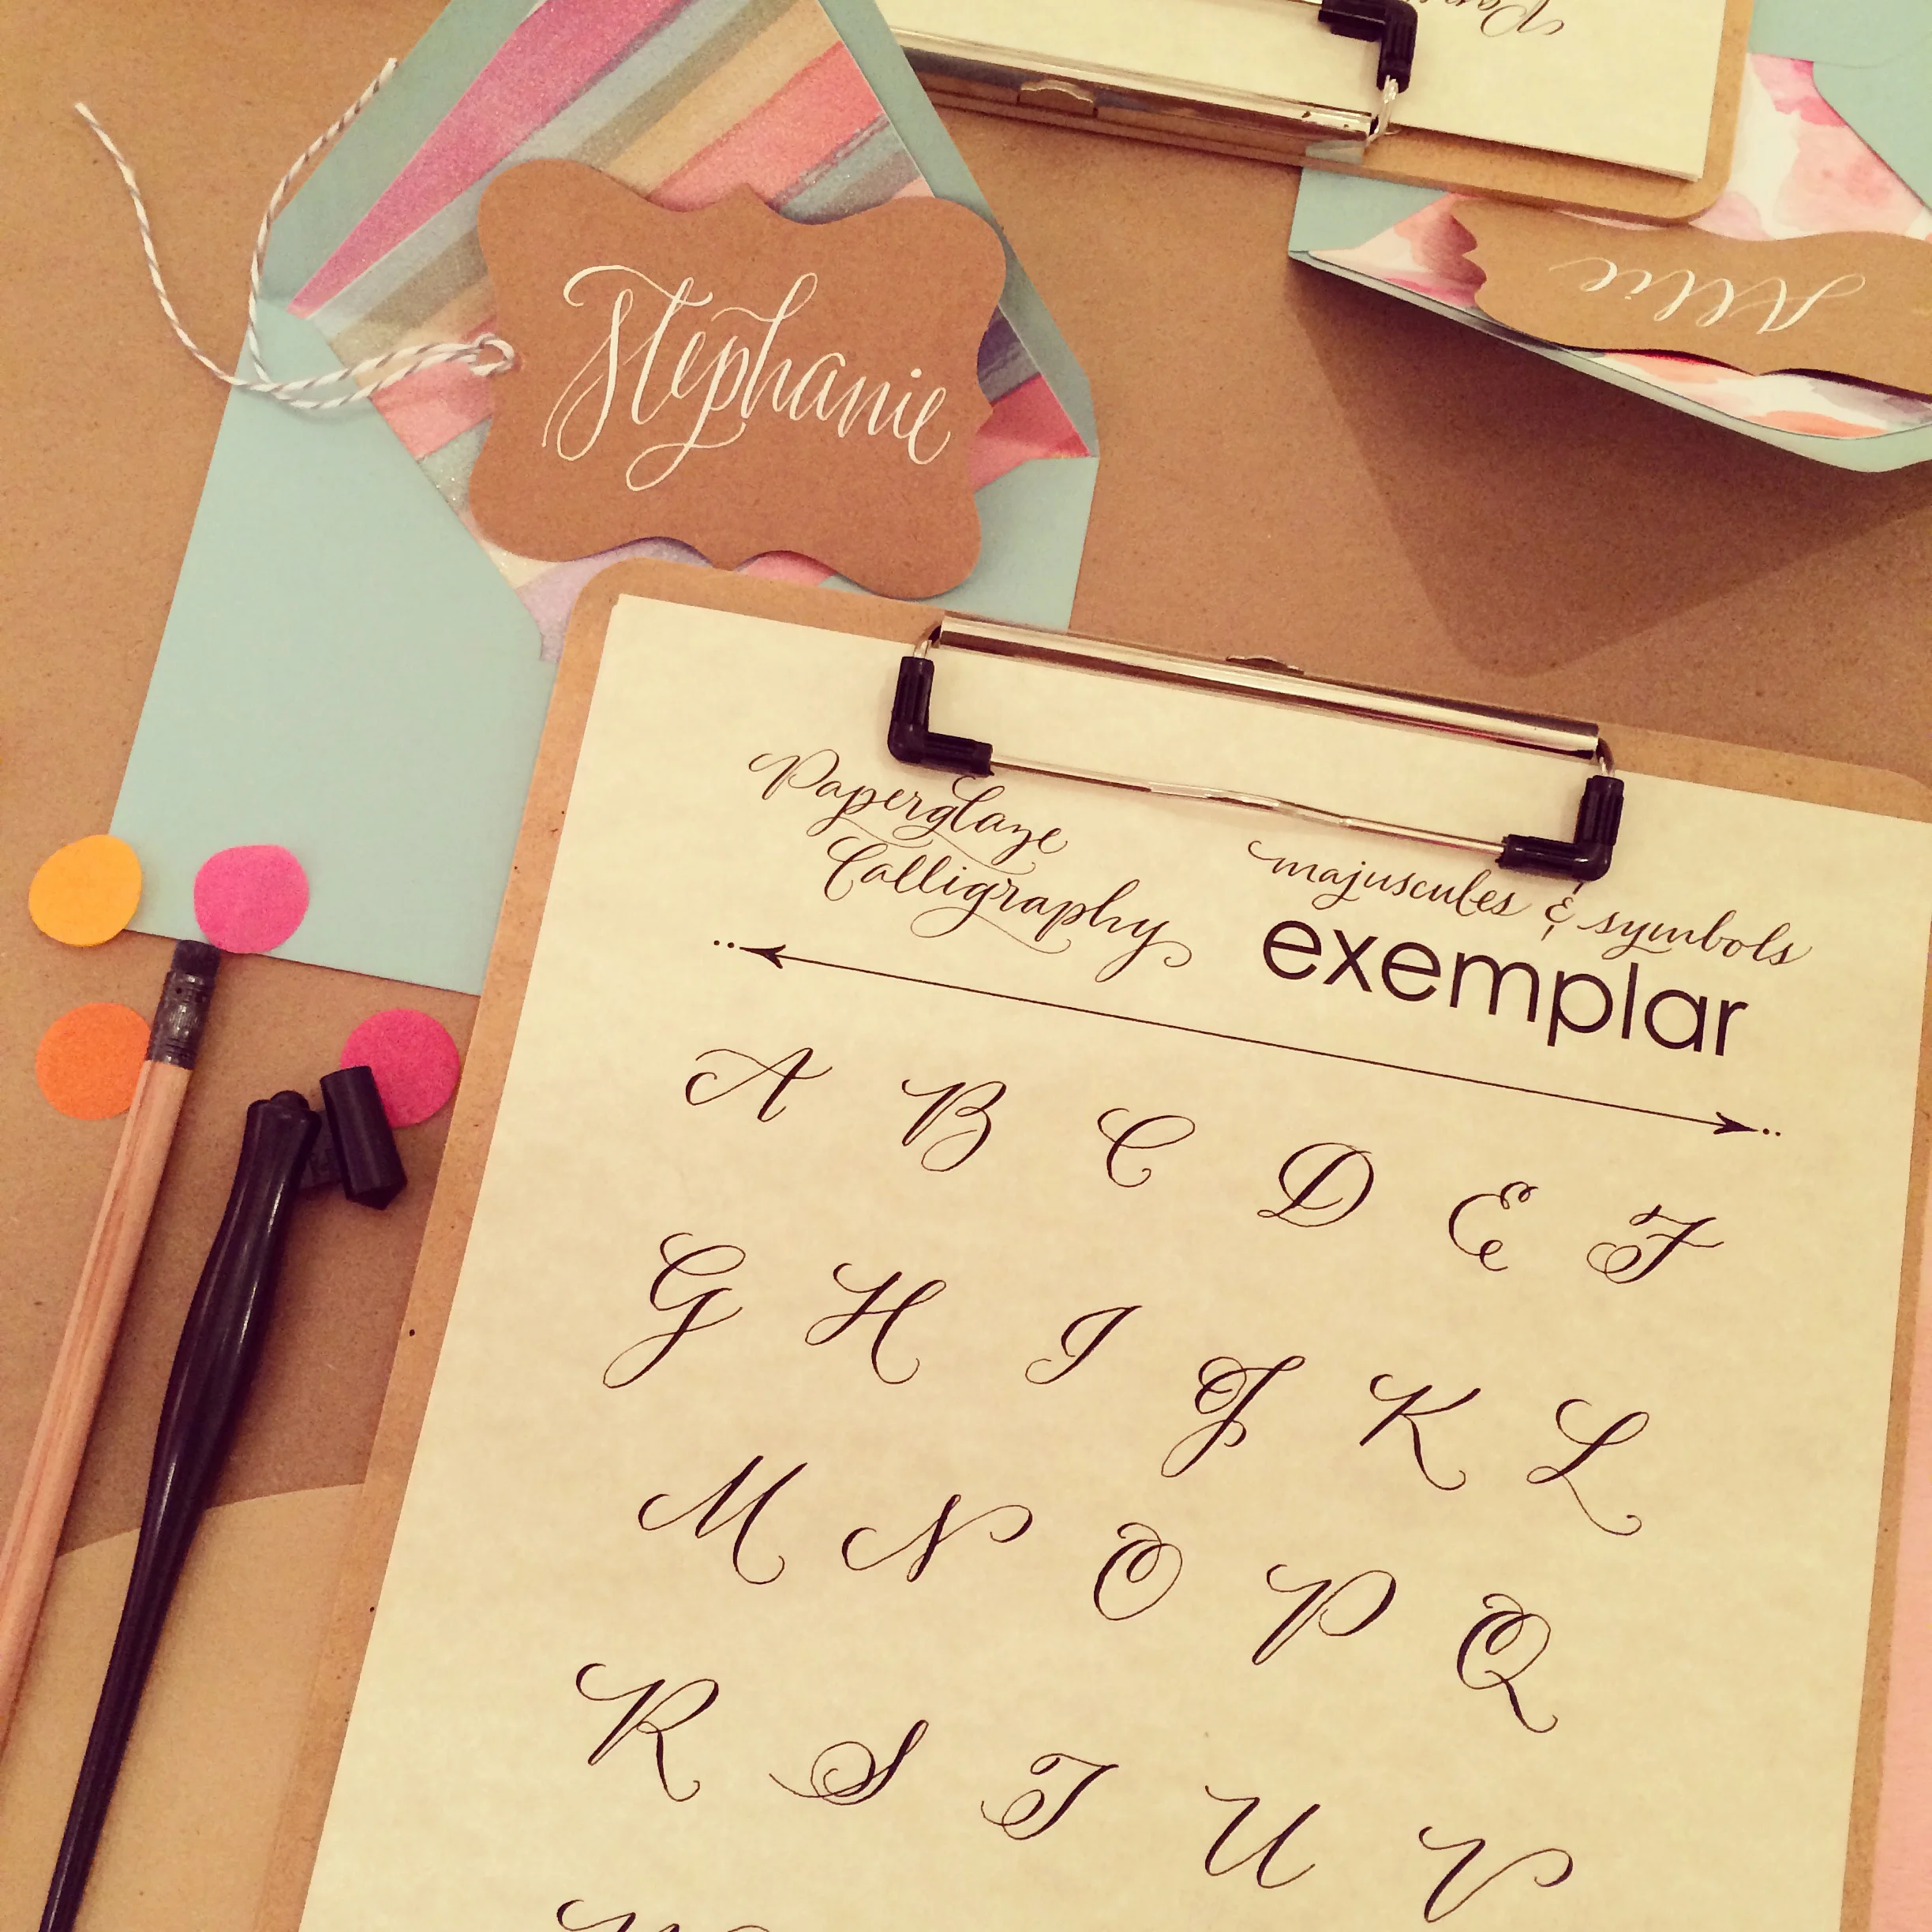 Stephanie
Allie
Paperglaze
Calligraphy
majuscules & symbols
exemplar
A B C D E F
G H I J K L
M N O P Q
R S T U V